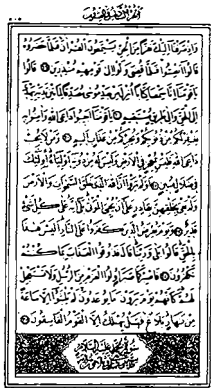 وَإِذْ صَرَفْنَا إِلَيْكَ نَفَرًا مِنَ الْجِنِّ يَسْتَمِعُونَ الْقُرْآنَ فَلَمَّا حَضَرُوهُ
قَالُوا أَنْصِتُوا فَلَمَّا قُضِيَ وَلَّوْا إِلَى قَوْمِهِمْ مُنْذِرِينَ قَالُوا
يَا قَوْمَنَا إِنَّا سَمِعْنَا كِتَابًا أُنْزِلَ مِنْ بَعْدِ مُوسَى مُصَدِّقًا لِمَا بَيْنَ يَدَيْهِ يَهْدِي
إِلَى الْحَقِّ وَإِلَى طَرِيقٍ مُسْتَقِيمٍ يَا قَوْمَنَا أَجِيبُوا دَاعِيَ اللَّهِ وَآمِنُوا بِهِ
يَغْفِرْ لَكُمْ مِنْ ذُنُوبِكُمْ وَيُجِرْكُمْ مِنْ عَذَابٍ أَلِيمٍ وَمَنْ لَا يُجِبْ
دَاعِيَ اللَّهِ فَلَيْسَ بِمُعْجِزٍ فِي الْأَرْضِ وَلَيْسَ لَهُ مِنْ دُونِهِ أَوْلِيَاءُ أُولَئِكَ
فِي ضَلَالٍ مُبِينٍ أَوَلَمْ يَرَوْا أَنَّ اللَّهَ الَّذِي خَلَقَ السَّمَوَاتِ وَالْأَرْضَ
وَلَمْ يَعْيَ بِخَلْقِهِنَّ بِقَادِرٍ عَلَى أَنْ يُحْيِيَ الْمَوْتَى بَلَى إِنَّهُ عَلَى كُلِّ شَيْءٍ
قَدِيرٌ وَيَوْمَ يُعْرَضُ الَّذِينَ كَفَرُوا عَلَى النَّارِ أَلَيْسَ هَذَا
بِالْحَقِّ قَالُوا بَلَى وَرَبِّنَا قَالَ فَذُوقُوا الْعَذَابَ بِمَا كُنْتُمْ
تَكْفُرُونَ فَاصْبِرْ كَمَا صَبَرَ أُولُوا الْعَزْمِ مِنَ الرُّسُلِ وَلَا تَسْتَعْجِلْ
لَهُمْ كَأَنَّهُمْ يَوْمَ يَرَوْنَ مَا يُوعَدُونَ لَمْ يَلْبَثُوا إِلَّا سَاعَةً
مِنْ نَهَارٍ بَلَاغٌ فَهَلْ يُهْلَكُ إِلَّا الْقَوْمُ الْفَاسِقُونَ